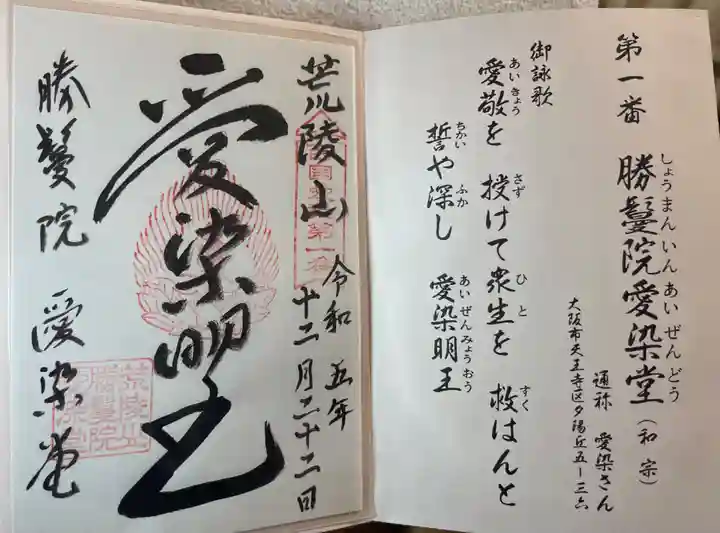 第一番 勝鬘院愛染堂(和宗)
しょうまんいんあいぜんどう
通称 愛染さん
大阪市天王寺区夕陽丘五ー三六
御詠歌
愛敬を 授けて衆生を 救はんと
あいきょう さず ひと すく
誓や深し 愛染明王
ちかい ふか あいぜんみょうおう
荒陵山
令和五年
十二月二十二日
愛染明王
勝鬘院 愛染堂
荒陵山
勝鬘院
愛染堂